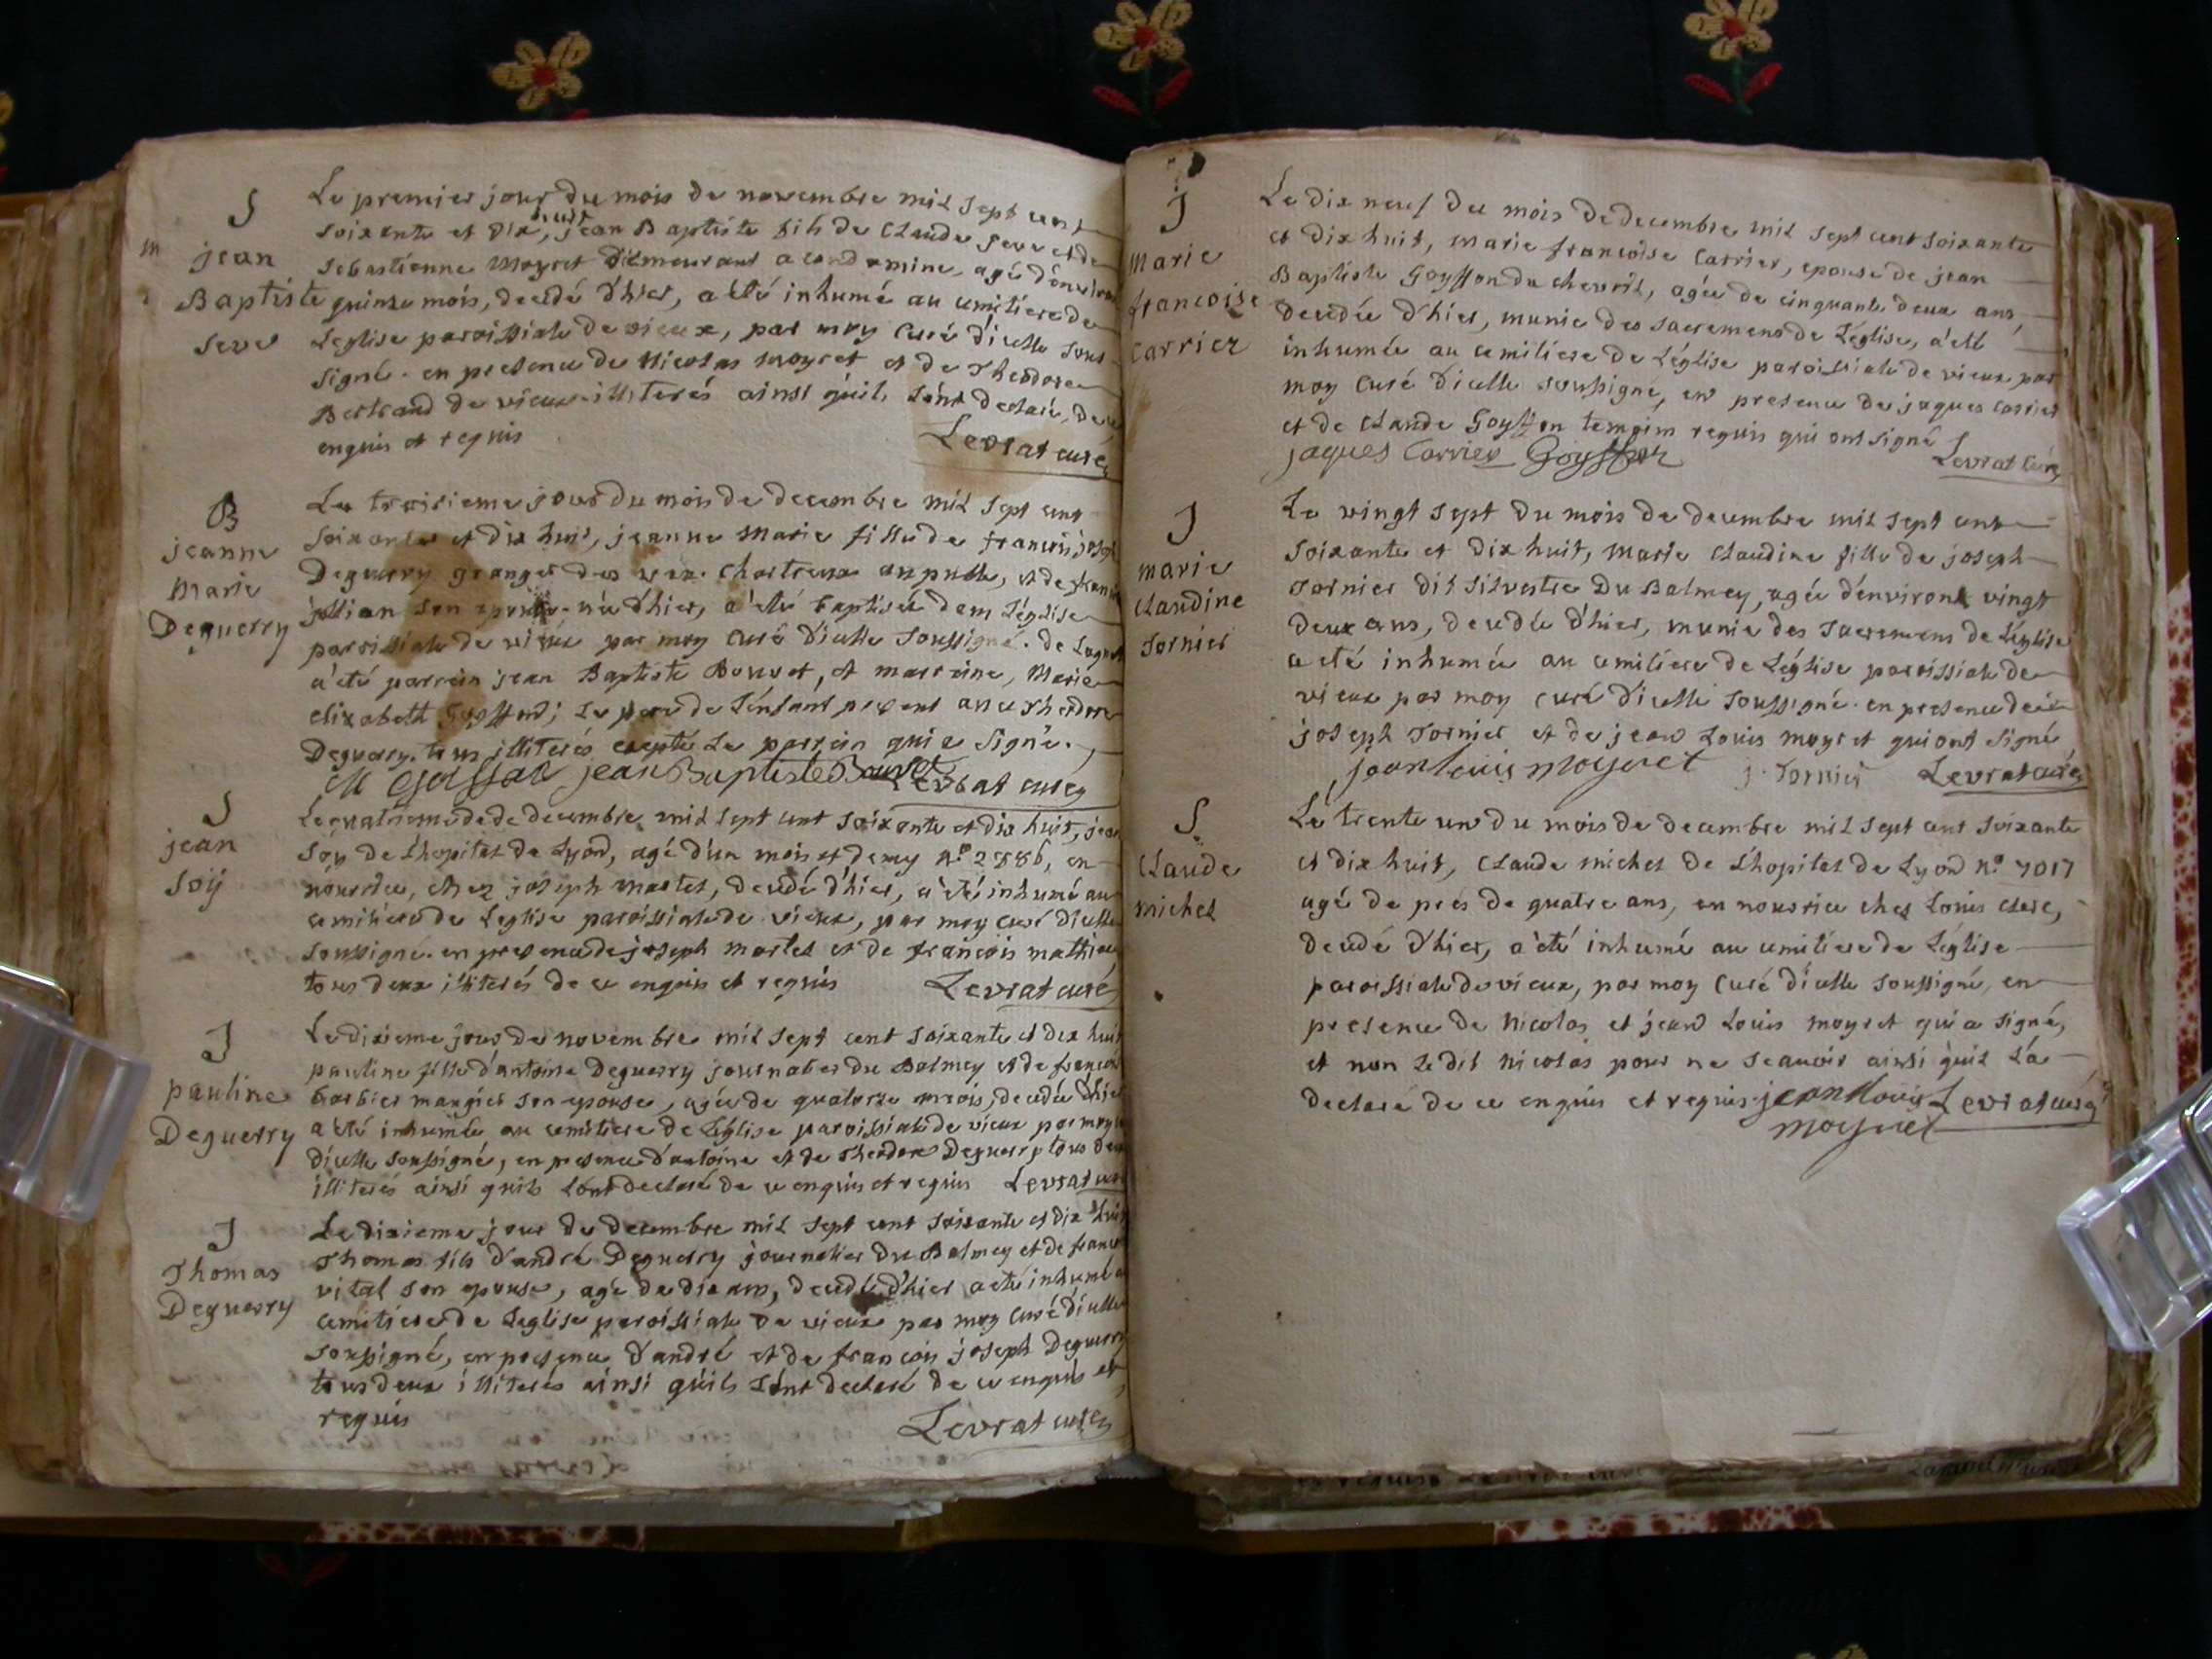 S
jean
Baptiste
seve
Le premier jour du mois de novembre mil sept cent
soixante et dix huit, jean Baptiste fils de Claude seve et de
sebastienne moyret demeurant a condamine, agé d'environ
quinze mois, decedé d'hier, a été inhumé au cemitiere de
Leglise paroissiale de vieux, par moy curé d'icelle sous
signé. en presence de Nicolas moyret et de Theodore
Bertrand de vieux illiterés ainsi qu'ils l'ont declaré, de ce
enquis et requis
Levrat curé
B
jeanne
Marie
Deguerry
Le troisieme jour du mois de decembre mil sept cent
soixante et dix huit, jeanne Marie fille de francois joseph
Deguerry granger des rex. Chartreux, et de
son epouse née d'hier, a été baptisée dans l'église
paroissiale de vieux par moy curé d'icelle soussigné. de Lognat
a été parrein jean Baptiste Bouvet, et marreine, Marie
elizabett Goyffond; Le pere de l'enfant present avec Theodore
Deguerry. tous illiterés excepté Le parrein qui a signé.
jean Baptiste Bouvet Levrat curé
S
jean
Soÿ
Le quatrieme de decembre mil sept cent soixante et dix huit, jean
Soÿ de L'hopital de Lyon, agé d'un mois et demy N.º en
nourrice, chez joseph martel, decedé d'hier, a été inhumé au
cemitiere de Leglise paroissiale de vieux, par moy curé d'icelle
soussigné. en presence de joseph martel et de francois mathieu
tous deux illiterés de ce enquis et requis
Levrat curé
J
pauline
Deguerry
Le dixieme jour de novembre mil sept cent soixante et dix huit
pauline fille d'antoine Deguerry journalier du Balmey et de francoise
barbier mangier son epouse, agée de quatorze mois, decedée d'hier
a été inhumée au cemitiere de L'église paroissiale de vieux par moy
d'icelle soussigné, en presence d'antoine et de Theodore Deguerry tous deux
illiterés ainsi qu'ils L'ont declaré de ce enquis et requis Levrat curé
J
Thomas
Deguerry
Le dixieme jour de decembre mil sept cent soixante et dix huit
Thomas fils d'andré Deguerry journalier du Balmey et de francoise
vital son epouse, agé de dix ans, decedé d'hier a eté inhumé a
cemitiere de Leglise paroissiale de vieux par moy curé d'icelle
soussigné, en presence d'andré et de francois joseph Deguerry
tous deux illiterés ainsi qu'ils L'ont declaré de ce enquis et
requis
Levrat curé
J
Marie
francoise
Carrier
Le dix neuf du mois de decembre mil sept cent soixante
et dix huit, marie francoise Carrier, epouse de jean
Baptiste Goyffon du chevril, agée de cinquante deux ans,
decedée d'hier, munie des sacremens de L'église, a été
inhumée au cemitiere de L'église paroissiale de vieux par
moy Curé d'icelle soussigné, en presence de jaques Carrier
et de Claude Goyffon temoins requis qui ont signé
jaques Carrier Goyffon
Levrat Curé
J
marie
claudine
Tornier
Le vingt sept du mois de decembre mil sept cent
soixante et dix huit, Marie Claudine fille de joseph
Tornier dit silvestre Du Balmey, agée d'environ vingt
deux ans, decedée d'hier, munie des sacremens de L'église
a eté inhumée au cemitiere de L'église paroissiale de
vieux par moy curé d'icelle soussigné. en presence de
joseph Tornier et de jean Louis moyret qui ont signé
jean louis moyret j. Tornier Levrat curé
S
Claude
michel
Le trente un du mois de decembre mil sept cent soixante
et dix huit, Claude michel de L'hopital de Lyon N.º 7017
agé de prés de quatre ans, en nourrice chez Louis clerc,
decedé d'hier, a été inhumé au cemitiere de L'église
paroissiale de vieux, par moy Curé d'icelle soussigné, en
presence de Nicolas et jean Louis moyret qui a signé,
et non Le dit Nicolas pour ne scavoir ainsi qu'il L'a
declaré de ce enquis et requis. jean louis Levrat curé
moyret